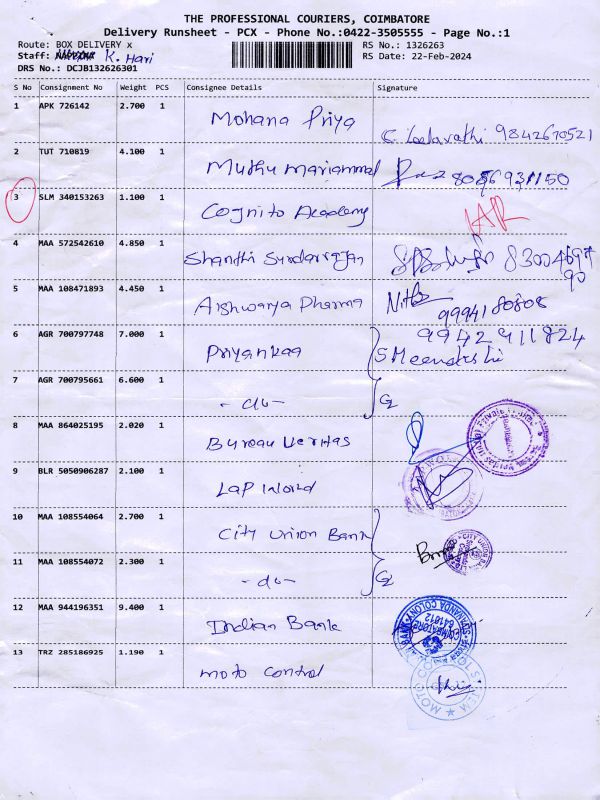 THE PROFESSIONAL COURIERS, COIMBATORE
Delivery Runsheet - PCX - Phone No.:0422-3505555 - Page No.:1
Route: BOX DELIVERY x RS No.: 1326263
Staff: K. Hari RS Date: 22-Feb-2024
DRS No.: DCJB132626301
S No Consignment No Weight PCS Consignee Details Signature
1 APK 726142 2.700 1 Mohana Priya 9842670521
2 TUT 710819 4.100 1 Muthu Mariammal 8086931150
3 SLM 340153263 1.100 1 Cognito Academy
4 MAA 572542610 4.850 1 Shanthi Sundarrajan 83004697
90
5 MAA 108471893 4.450 1 Aishwarya Pharma
9994180808
6 AGR 700797748 7.000 1 Priyankaa 9942911824
S Meenakshi
7 AGR 700795661 6.600 1 - do - 2
8 MAA 864025195 2.020 1 Bureau Veritas
9 BLR 5050906287 2.100 1
10 MAA 108554064 2.700 1 City Union Bank
11 MAA 108554072 2.300 1 - do - 2
12 MAA 944196351 9.400 1 Indian Bank
13 TRZ 285186925 1.190 1 moto control